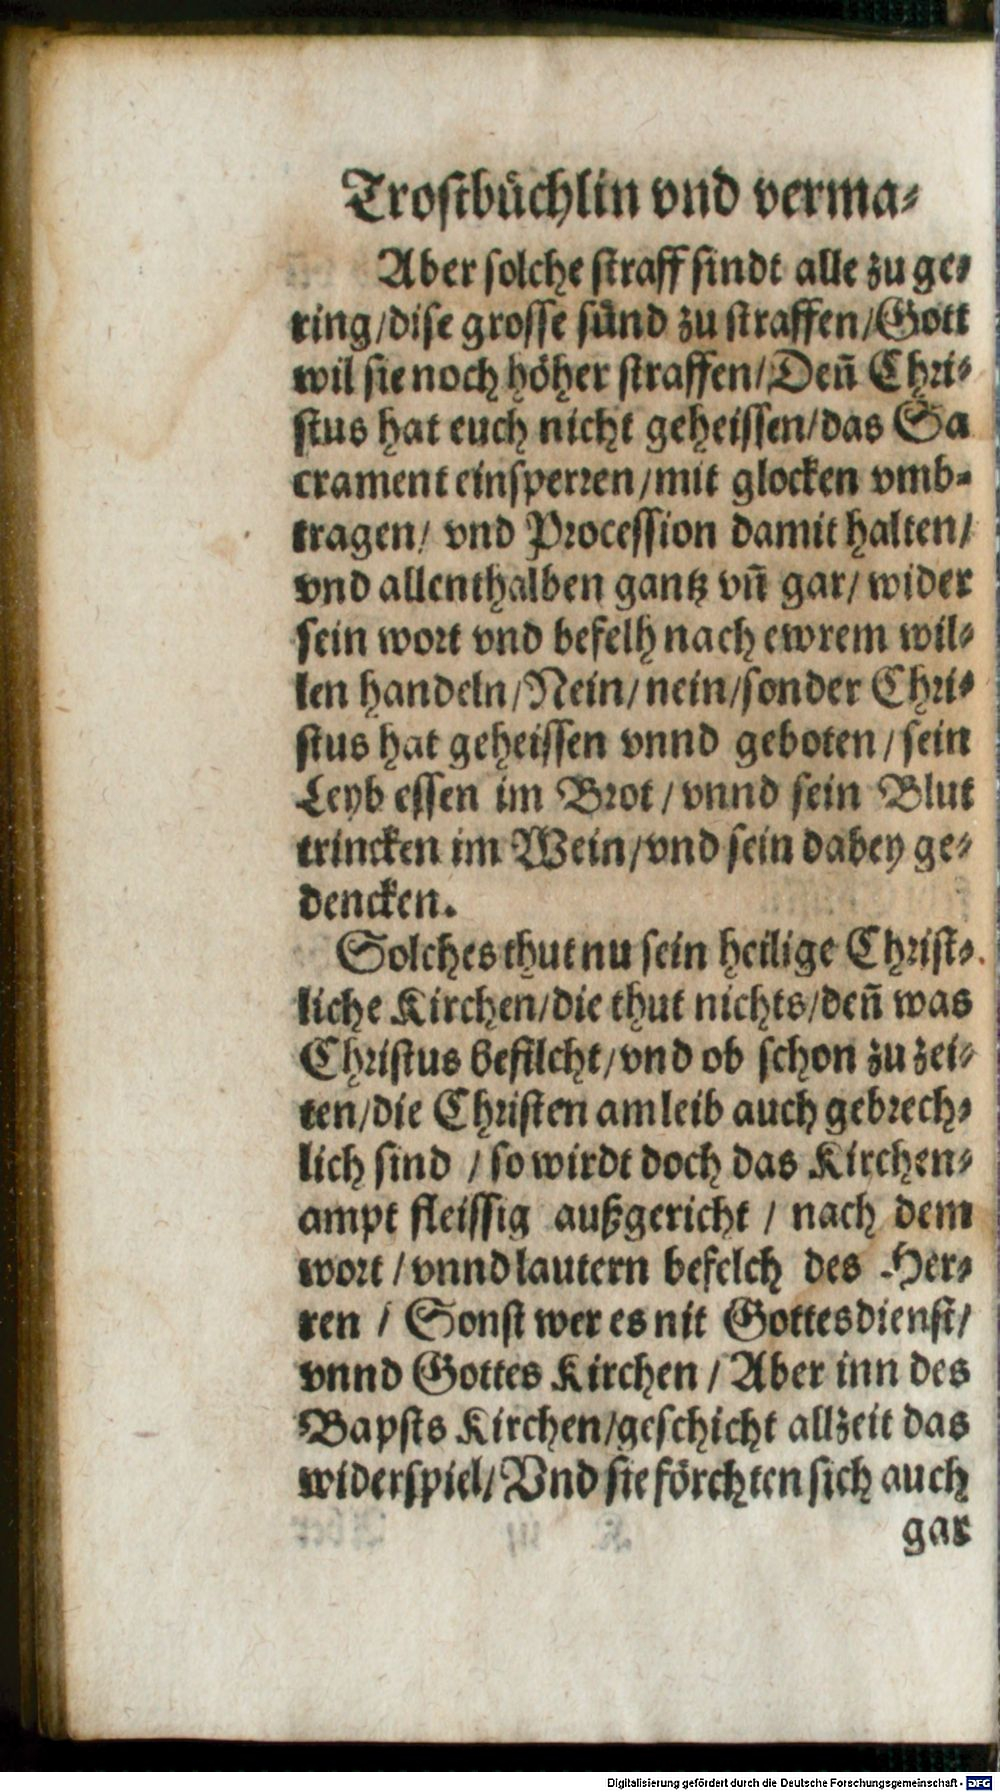 Trostbüchlin vnd verma⸗
Aber solche straff sindt alle zu ge⸗
ring/dise grosse sünd zu straffen/Gott
wil sie noch höher straffen/Deñ Chri⸗
stus hat euch nicht geheissen/das Sa
crament einsperren/mit glocken vmb⸗
tragen/ vnd Procession damit halten/
vnd allenthalben gantz vñ gar/ wider
sein wort vnd befelh nach ewrem wil⸗
len handeln/Nein/ nein/sonder Chri⸗
stus hat geheissen vnnd geboten/ sein
Leyb essen im Brot/ vnnd sein Blut
trincken im Wein/vnd sein dabey ge⸗
dencken.
Solches thut nu sein heilige Christ⸗
liche Kirchen/die thut nichts/deñ was
Christus befilcht/vnd ob schon zu zei⸗
ten/die Christen am leib auch gebrech⸗
lich sind /so wirdt doch das Kirchen⸗
ampt fleissig außgericht / nach dem
wort / vnnd lautern befelch des Her⸗
ren / Sonst wer es nit Gottesdienst/
vnnd Gottes Kirchen / Aber inn des
Bapsts Kirchen/geschicht allzeit das
widerspiel/Vnd sie förchten sich auch
gar
Digitalisierung gefördert durch die Deutsche Forschungsgemeinschaft - DFG